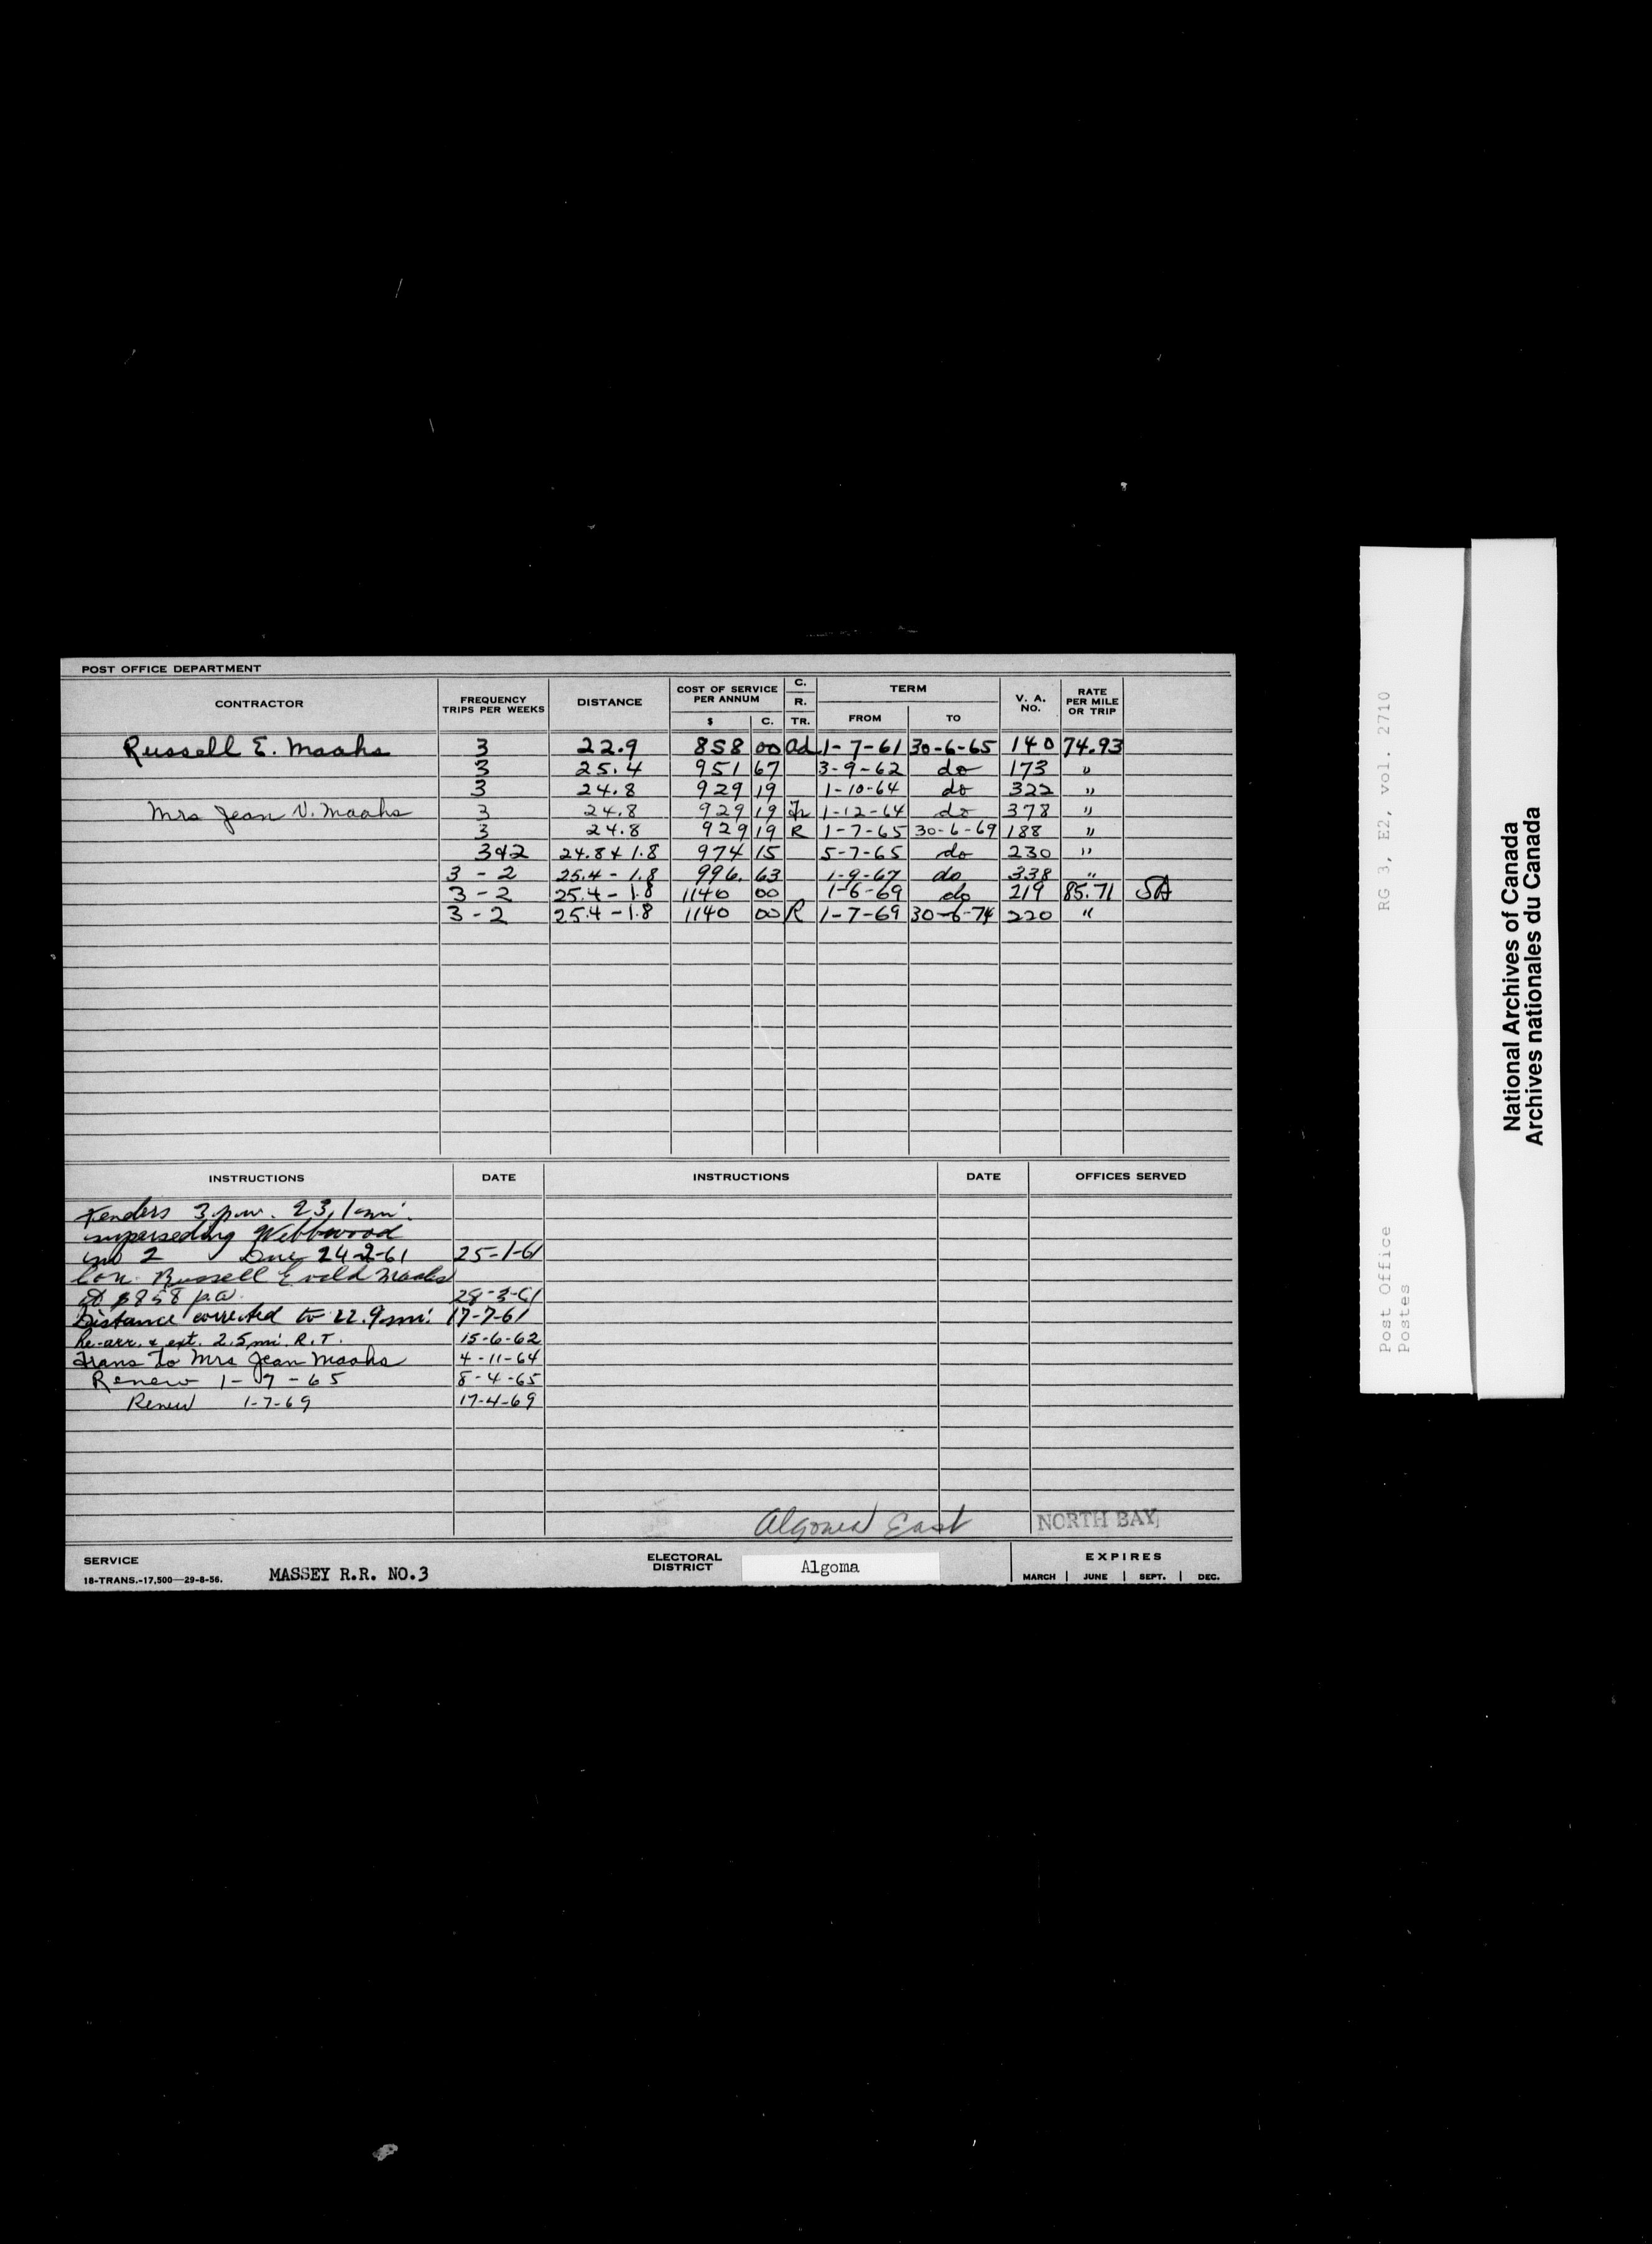 POST OFFICE DEPARTMENT
CONTRACTOR FREQUENCY TRIPS PER WEEKS DISTANCE COST OF SERVICE PER ANNUM $ C. C. R. TR. TERM FROM TO V. A. NO. RATE PER MILE OR TRIP
Russell E. Maahs 3 22.9 858 00 Ad. 1-7-61 30-6-65 140 74.93
3 25.4 951 67 3-9-62 do 173 "
3 24.8 929 19 1-10-64 do 322 "
Mrs Jean V. Maahs 3 24.8 929 19 Tr 1-12-64 do 378 "
3 24.8 929 19 R 1-7-65 30-6-69 188 "
3&2 24.8 & 1.8 974 15 5-7-65 do 230 "
3 - 2 25.4 - 1.8 996. 63 1-9-67 do 338 "
3 - 2 25.4 - 1.8 1140 00 1-6-69 do 219 85.71 SA
3 - 2 25.4 - 1.8 1140 00 R 1-7-69 30-6-74 220 "
INSTRUCTIONS DATE INSTRUCTIONS DATE OFFICES SERVED
Tenders 3 p.w. 23.1 mi.
superseding Webbwood
no 2 Due 24-2-61 25-1-61
Con. Russell Evald Maahs
at $858 p.a. 28-3-61
Distance corrected to 22.9 mi. 17-7-61
Re-arr. & ext. 2.5 mi. R.T. 15-6-62
Trans to Mrs Jean Maahs 4-11-64
Renew 1-7-65 8-4-65
Renew 1-7-69 17-4-69
Algoma East NORTH BAY
SERVICE MASSEY R.R. NO.3 ELECTORAL DISTRICT Algoma EXPIRES
18-TRANS.-17,500-29-8-56. MARCH | JUNE | SEPT. | DEC.
RG 3, E2, vol. 2710
Post Office
Postes
National Archives of Canada
Archives nationales du Canada